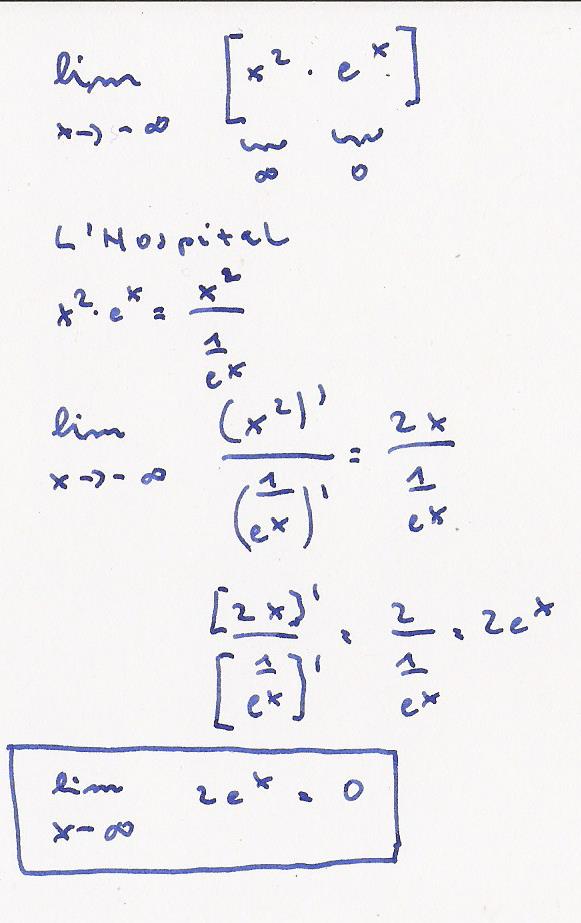 lim [x² · eˣ]
x→-∞ ∞ 0
L'Hospital
x²·eˣ = x² / (1/eˣ)
lim (x²)' / (1/eˣ)' = 2x / (1/eˣ)
x→-∞
[2x]' / [1/eˣ]' = 2 / (1/eˣ) = 2eˣ
lim 2eˣ = 0
x-∞